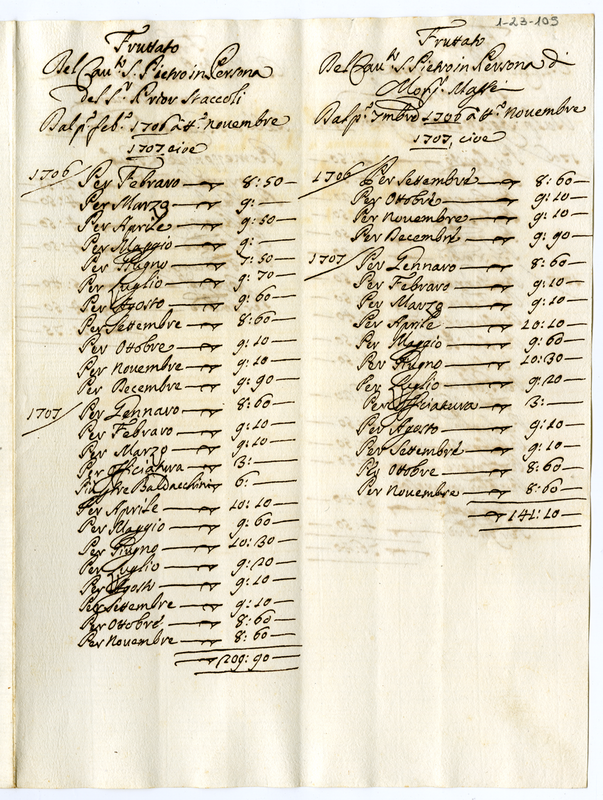 1-23-105
Fruttato
Del Cau.to S. Pietro in Persona
del S.r Prior Staccoli
Dal p.º feb.º 1706 à t.º novembre
1707, cioè
1706 Per Febraro 8:50
Per Marzo 9:
Per Aprile 9:50
Per Maggio 9:
Per Giugno 7:50
Per Luglio 9:70
Per Agosto 9:60
Per Settembre 8:60
Per Ottobre 9:10
Per Novembre 9:10
Per Decembre 9:90
1707 Per Gennaro 8:60
Per Febraro 9:10
Per Marzo 9:10
Per officiatura 3:
Baldacchini 6:
Per Aprile 10:10
Per Maggio 9:60
Per Giugno 10:30
Per Luglio 9:20
Per Agosto 9:10
Per Settembre 9:10
Per Ottobre 8:60
Per Novembre 8:60
209:90
Fruttato
Del Cau.to S. Pietro in Persona di
Mons.r Massei
Dal p.º 7mbre 1706 à t.º Novembre
1707, cioè
1706 Per Settembre 8:60
Per Ottobre 9:10
Per Novembre 9:10
Per Decembre 9:90
1707 Per Gennaro 8:60
Per Febraro 9:10
Per Marzo 9:10
Per Aprile 10:10
Per Maggio 9:60
Per Giugno 10:30
Per Luglio 9:20
Per officiatura 3:
Per Agosto 9:10
Per Settembre 9:10
Per Ottobre 8:60
Per Novembre 8:60
141:10